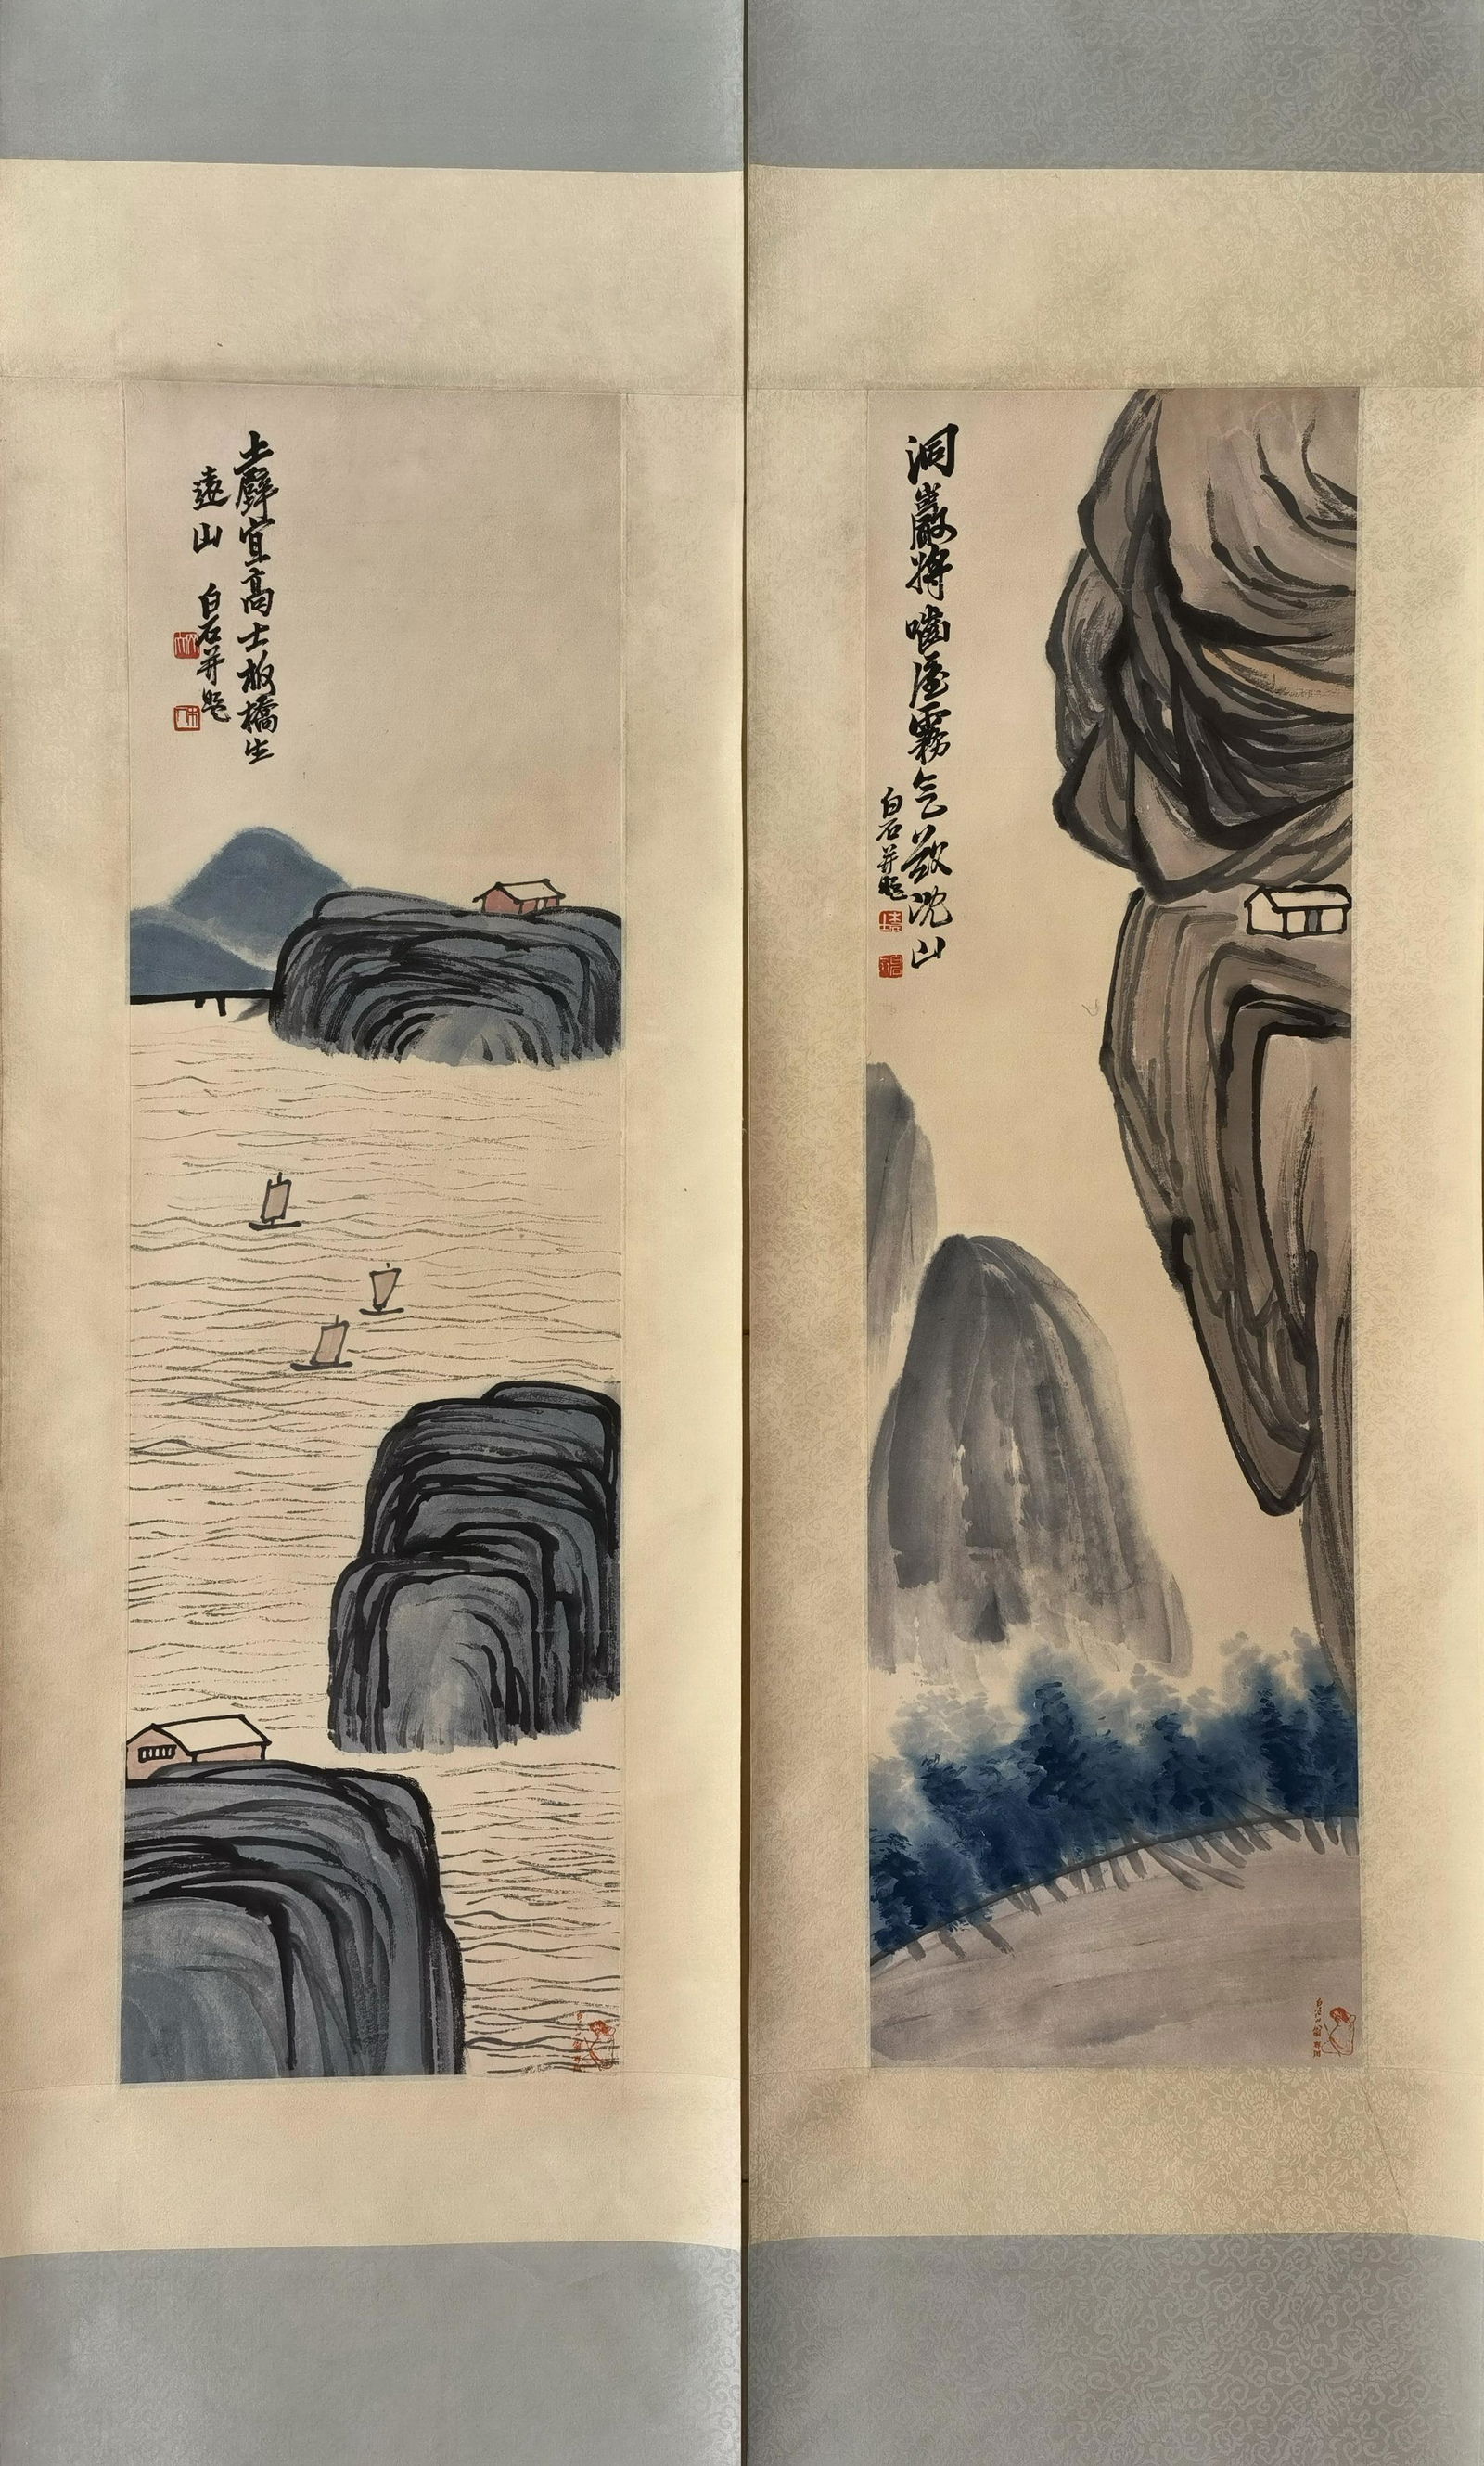 洞巖將嚙屋霧气欲沈山
白石并題
土壁宜高士板橋生
遠山 白石并題